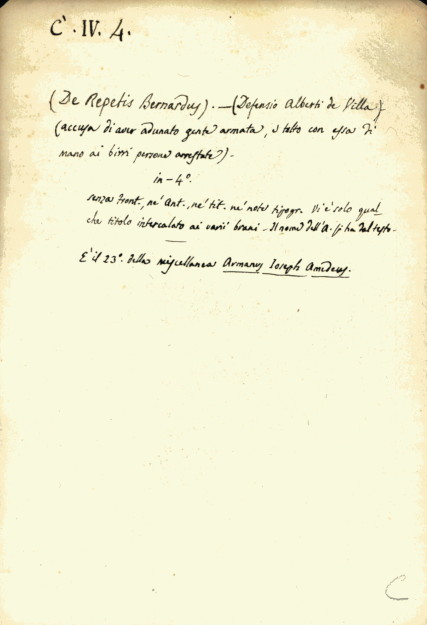 C. IV. 4.
(De Repetis Bernardus). — (Defensio Alberti de Villa)
(accusa di aver adunato gente armata, e tolto con essa di
mano ai birri persone arrestate) -
in - 4°.
senza front., nè ant., nè tit. nè note tipogr. Vi è solo qual
che titolo intercalato ai varii brani - Il nome dell'A. si ha dal testo -
E' il 23°. della miscellanea Armanus Ioseph Amedeus.
C